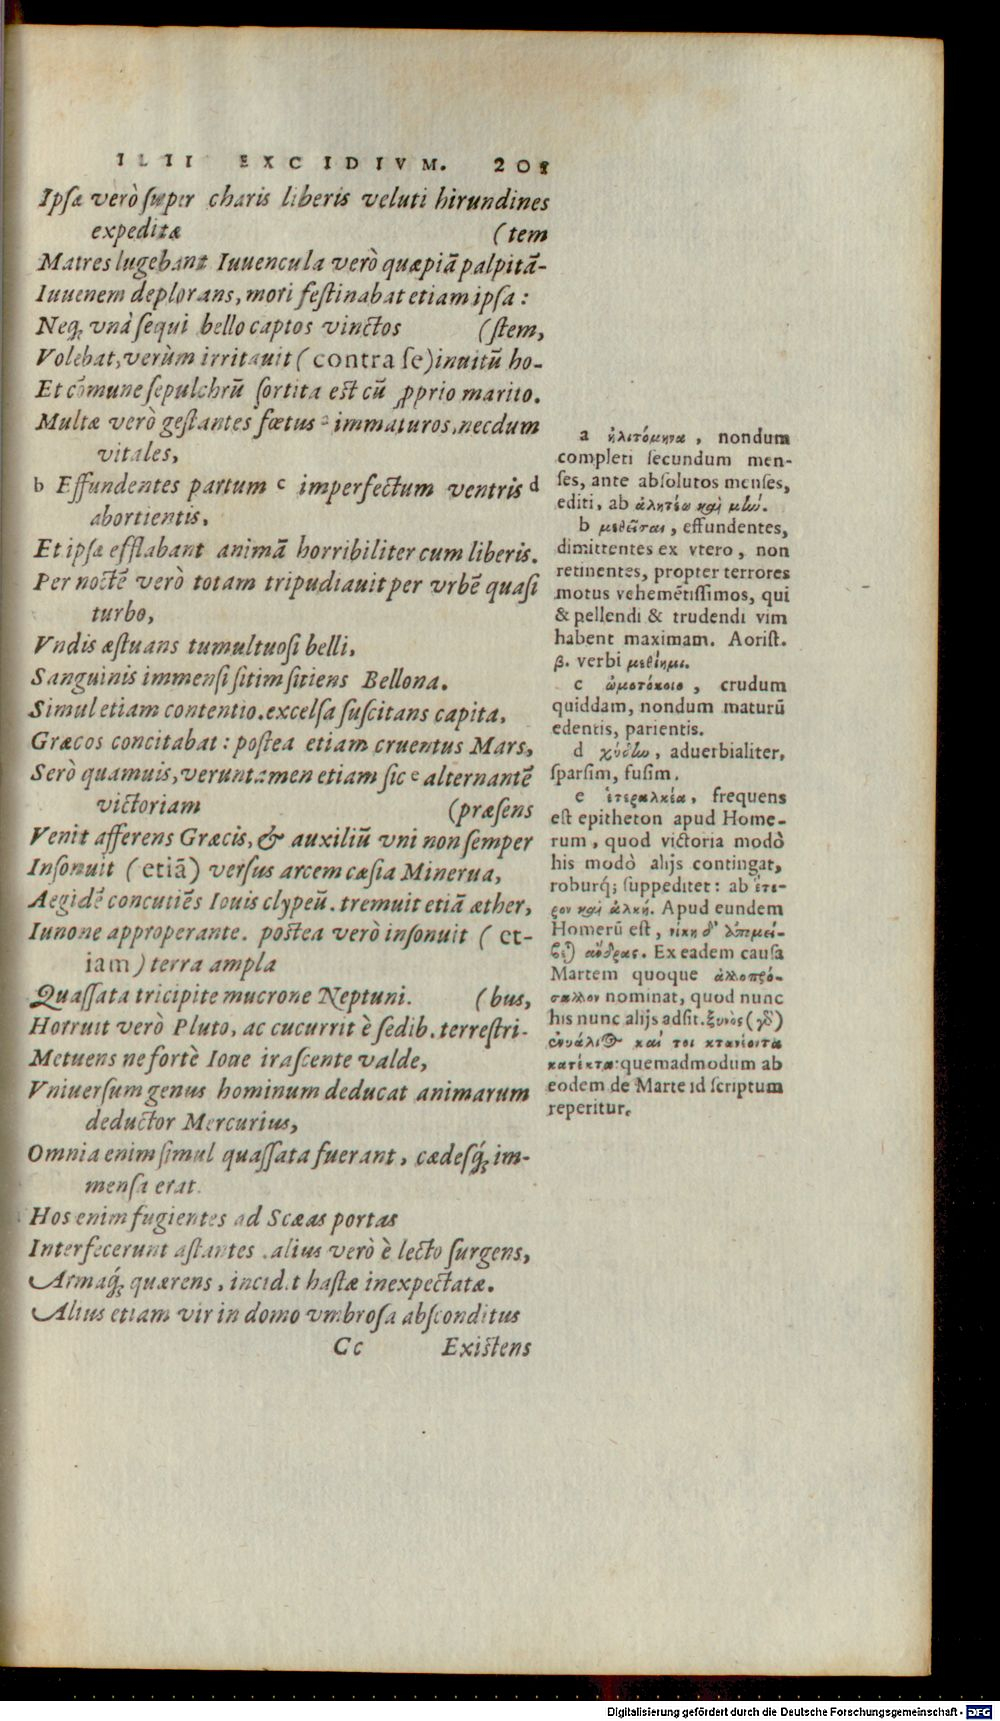 ILII EXCIDIVM. 201
Ipsæ verò super charis liberis veluti hirundines
expeditæ (tem
Matres lugebant Iuuencula verò quæpiã palpitã-
Iuuenem deplorans, mori festinabat etiam ipsa:
Neq; vnà sequi bello captos vinctos (stem,
Volebat, verùm irritauit (contra se) inuitũ ho-
Et cõmune sepulchrũ sortita est cũ ꝓprio marito.
Multæ verò gestantes fœtus a immaturos, necdum
vitales,
b Effundentes partum c imperfectum ventris d
abortientis,
Et ipsæ efflabant animã horribiliter cum liberis.
Per noctẽ verò totam tripudiauit per vrbẽ quasi
turbo,
Vndis æstuans tumultuosi belli,
Sanguinis immensi sitim sitiens Bellona.
Simul etiam contentio. excelsa suscitans capita,
Græcos concitabat: postea etiam cruentus Mars,
Serò quamuis, veruntamen etiam sic e alternantẽ
victoriam (præsens
Venit afferens Græcis, & auxiliũ vni non semper
Insonuit (etiã) versus arcem cæsia Minerua,
Aegidẽ concutiẽs Iouis clypeũ. tremuit etiã æther,
Iunone approperante. postea verò insonuit (et-
iam) terra ampla
Quassata tricipite mucrone Neptuni. (bus,
Horruit verò Pluto, ac cucurrit è sedib. terrestri-
Metuens ne fortè Ioue irascente valde,
Vniuersum genus hominum deducat animarum
deductor Mercurius,
Omnia enim simul quassata fuerant, cædesq́; im-
mensa erat.
Hos enim fugientes ad Scæas portas
Interfecerunt astantes. alius verò è lecto surgens,
Armaq́; quærens, incidit hastæ inexpectatæ.
Alius etiam vir in domo vmbrosa absconditus
Cc Existens
a ἠλιτόμηνα, nondum
completi secundum men-
ses, ante absolutos menses,
editi, ab ἀλητέω καὶ μὴν.
b μεθεῖσαι, effundentes,
dimittentes ex vtero, non
retinentes, propter terrores
motus vehemẽtissimos, qui
& pellendi & trudendi vim
habent maximam. Aorist.
β. verbi μεθίημι.
c ὠμοτόκοιο, crudum
quiddam, nondum maturũ
edentis, parientis.
d χύδην, aduerbialiter,
sparsim, fusim.
e ἑτεραλκέα, frequens
est epitheton apud Home-
rum, quod victoria modò
his modò alijs contingat,
roburq́; suppeditet: ab ἕτε-
ρον καὶ ἀλκή. Apud eundem
Homerũ est, νίκη δ' ἐπαμεί-
βεται ἄνδρας. Ex eadem causa
Martem quoque ἀλλοπρό-
σαλλον nominat, quod nunc
his nunc alijs adsit. ξυνὸς (γὰρ)
ἐνυάλιος καί τοι κτανέοντα
κατέκτα: quemadmodum ab
eodem de Marte id scriptum
reperitur.
Digitalisierung gefördert durch die Deutsche Forschungsgemeinschaft - DFG